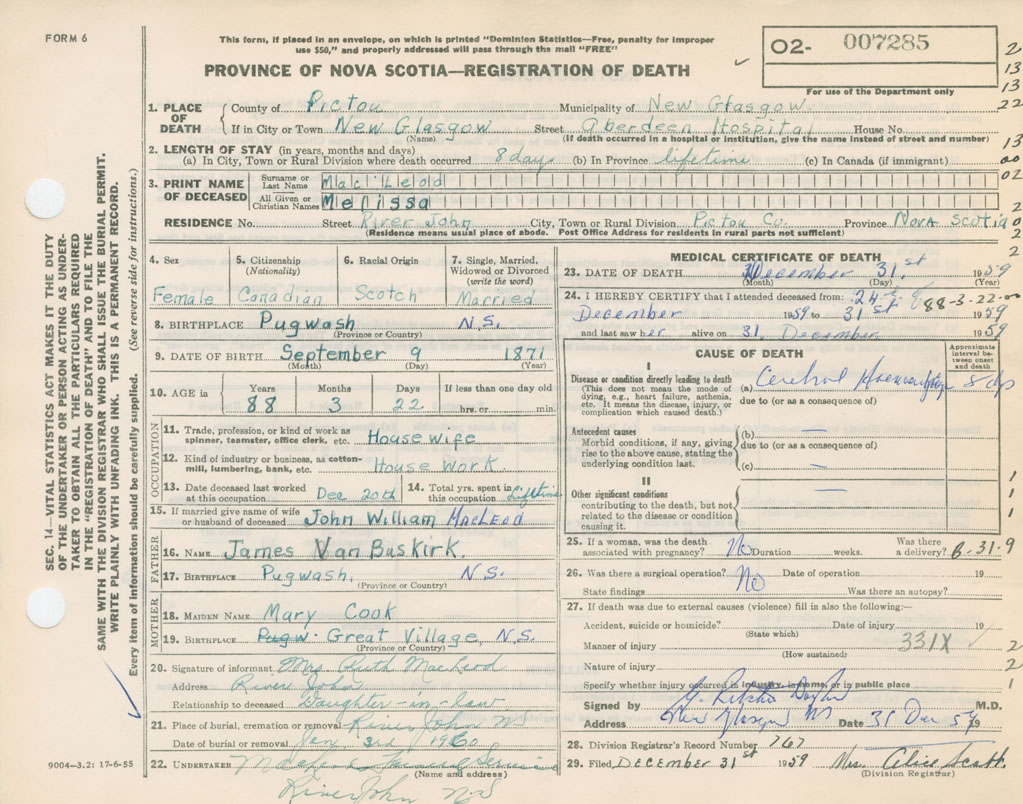 FORM 6
This form, if placed in an envelope, on which is printed "Dominion Statistics—Free, penalty for improper
use $50," and properly addressed will pass through the mail "FREE"
PROVINCE OF NOVA SCOTIA—REGISTRATION OF DEATH
O2- 007285
For use of the Department only
2
13
13
22
13
00
02
2
0
2
2
1. PLACE OF DEATH
County of Pictou Municipality of New Glasgow
If in City or Town New Glasgow Street Aberdeen Hospital House No.
(Name) (If death occurred in a hospital or institution, give the name instead of street and number)
2. LENGTH OF STAY (in years, months and days)
(a) In City, Town or Rural Division where death occurred 8 days (b) In Province lifetime (c) In Canada (if immigrant)
3. PRINT NAME OF DECEASED
Surname or Last Name MacLeod
All Given or Christian Names Melissa
RESIDENCE No. Street River John City, Town or Rural Division Pictou Co. Province Nova Scotia
(Residence means usual place of abode. Post Office Address for residents in rural parts not sufficient)
4. Sex
Female
5. Citizenship
(Nationality)
Canadian
6. Racial Origin
Scotch
7. Single, Married,
Widowed or Divorced
(write the word)
Married
8. BIRTHPLACE Pugwash N.S.
(Province or Country)
9. DATE OF BIRTH September 9 1871
(Month) (Day) (Year)
10. AGE in
Years Months Days If less than one day old
88 3 22 hrs. or min.
OCCUPATION
11. Trade, profession, or kind of work as
spinner, teamster, office clerk, etc. House wife
12. Kind of industry or business, as cotton-
mill, lumbering, bank, etc. House Work
13. Date deceased last worked
at this occupation Dec 20th
14. Total yrs. spent in
this occupation Lifetime
15. If married give name of wife
or husband of deceased John William MacLeod
FATHER
16. NAME James Van Buskirk.
17. BIRTHPLACE Pugwash, N.S.
(Province or Country)
MOTHER
18. MAIDEN NAME Mary Cook
19. BIRTHPLACE Pugw. Great Village, N.S.
(Province or Country)
20. Signature of informant Mrs Ruth MacLeod
Address River John
Relationship to deceased Daughter-in-law
21. Place of burial, cremation or removal River John NS
Date of burial or removal Jan 2nd 1960
22. UNDERTAKER MacLeod Funeral Service
(Name and address)
River John N.S
MEDICAL CERTIFICATE OF DEATH
23. DATE OF DEATH December 31st 1959
(Month) (Day) (Year)
24. I HEREBY CERTIFY that I attended deceased from: 24th
88-3-22-00
December 1959 to 31st 1959
and last saw her alive on 31, December 1959
CAUSE OF DEATH
Approximate
interval be-
tween onset
and death
I
Disease or condition directly leading to death
(This does not mean the mode of
dying, e.g., heart failure, asthenia,
etc. It means the disease, injury, or
complication which caused death.)
(a) Cerebral Hoemorrhage 8 dys
due to (or as a consequence of)
Antecedent causes
Morbid conditions, if any, giving
rise to the above cause, stating the
underlying condition last.
(b) —
due to (or as a consequence of)
(c) —
II
Other significant conditions
contributing to the death, but not
related to the disease or condition
causing it.
—
1
1
1
25. If a woman, was the death
associated with pregnancy? No Duration weeks. Was there
a delivery? 6-31-9
26. Was there a surgical operation? No Date of operation 19
State findings Was there an autopsy?
27. If death was due to external causes (violence) fill in also the following:—
Accident, suicide or homicide? Date of injury 19
(State which)
Manner of injury 331X
(How sustained)
Nature of injury
2
2
1
Specify whether injury occurred in industry, in home, or in public place
Signed by M.D.
Address New Glasgow NS Date 31 Dec 59 19
28. Division Registrar's Record Number 767
29. Filed, December 31st 1959 Mrs. Alice Scott.
(Division Registrar)
SEC. 14—VITAL STATISTICS ACT MAKES IT THE DUTY
OF THE UNDERTAKER OR PERSON ACTING AS UNDER-
TAKER TO OBTAIN ALL THE PARTICULARS REQUIRED
IN THE "REGISTRATION OF DEATH" AND TO FILE THE
SAME WITH THE DIVISION REGISTRAR WHO SHALL ISSUE THE BURIAL PERMIT.
WRITE PLAINLY WITH UNFADING INK. THIS IS A PERMANENT RECORD.
Every item of information should be carefully supplied. (See reverse side for instructions.)
9004—3.2: 17-6-55